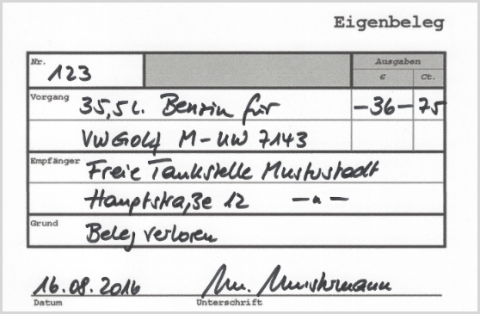 Eigenbeleg
Nr. 123
Ausgaben
€ Ct.
Vorgang 35,5 l. Benzin für -36- 75
VW Golf M-UW 7143
Empfänger Freie Tankstelle Musterstadt
Hauptstraße 12 -"-
Grund
Beleg verloren
16.08.2016 M. Mustermann
Datum Unterschrift